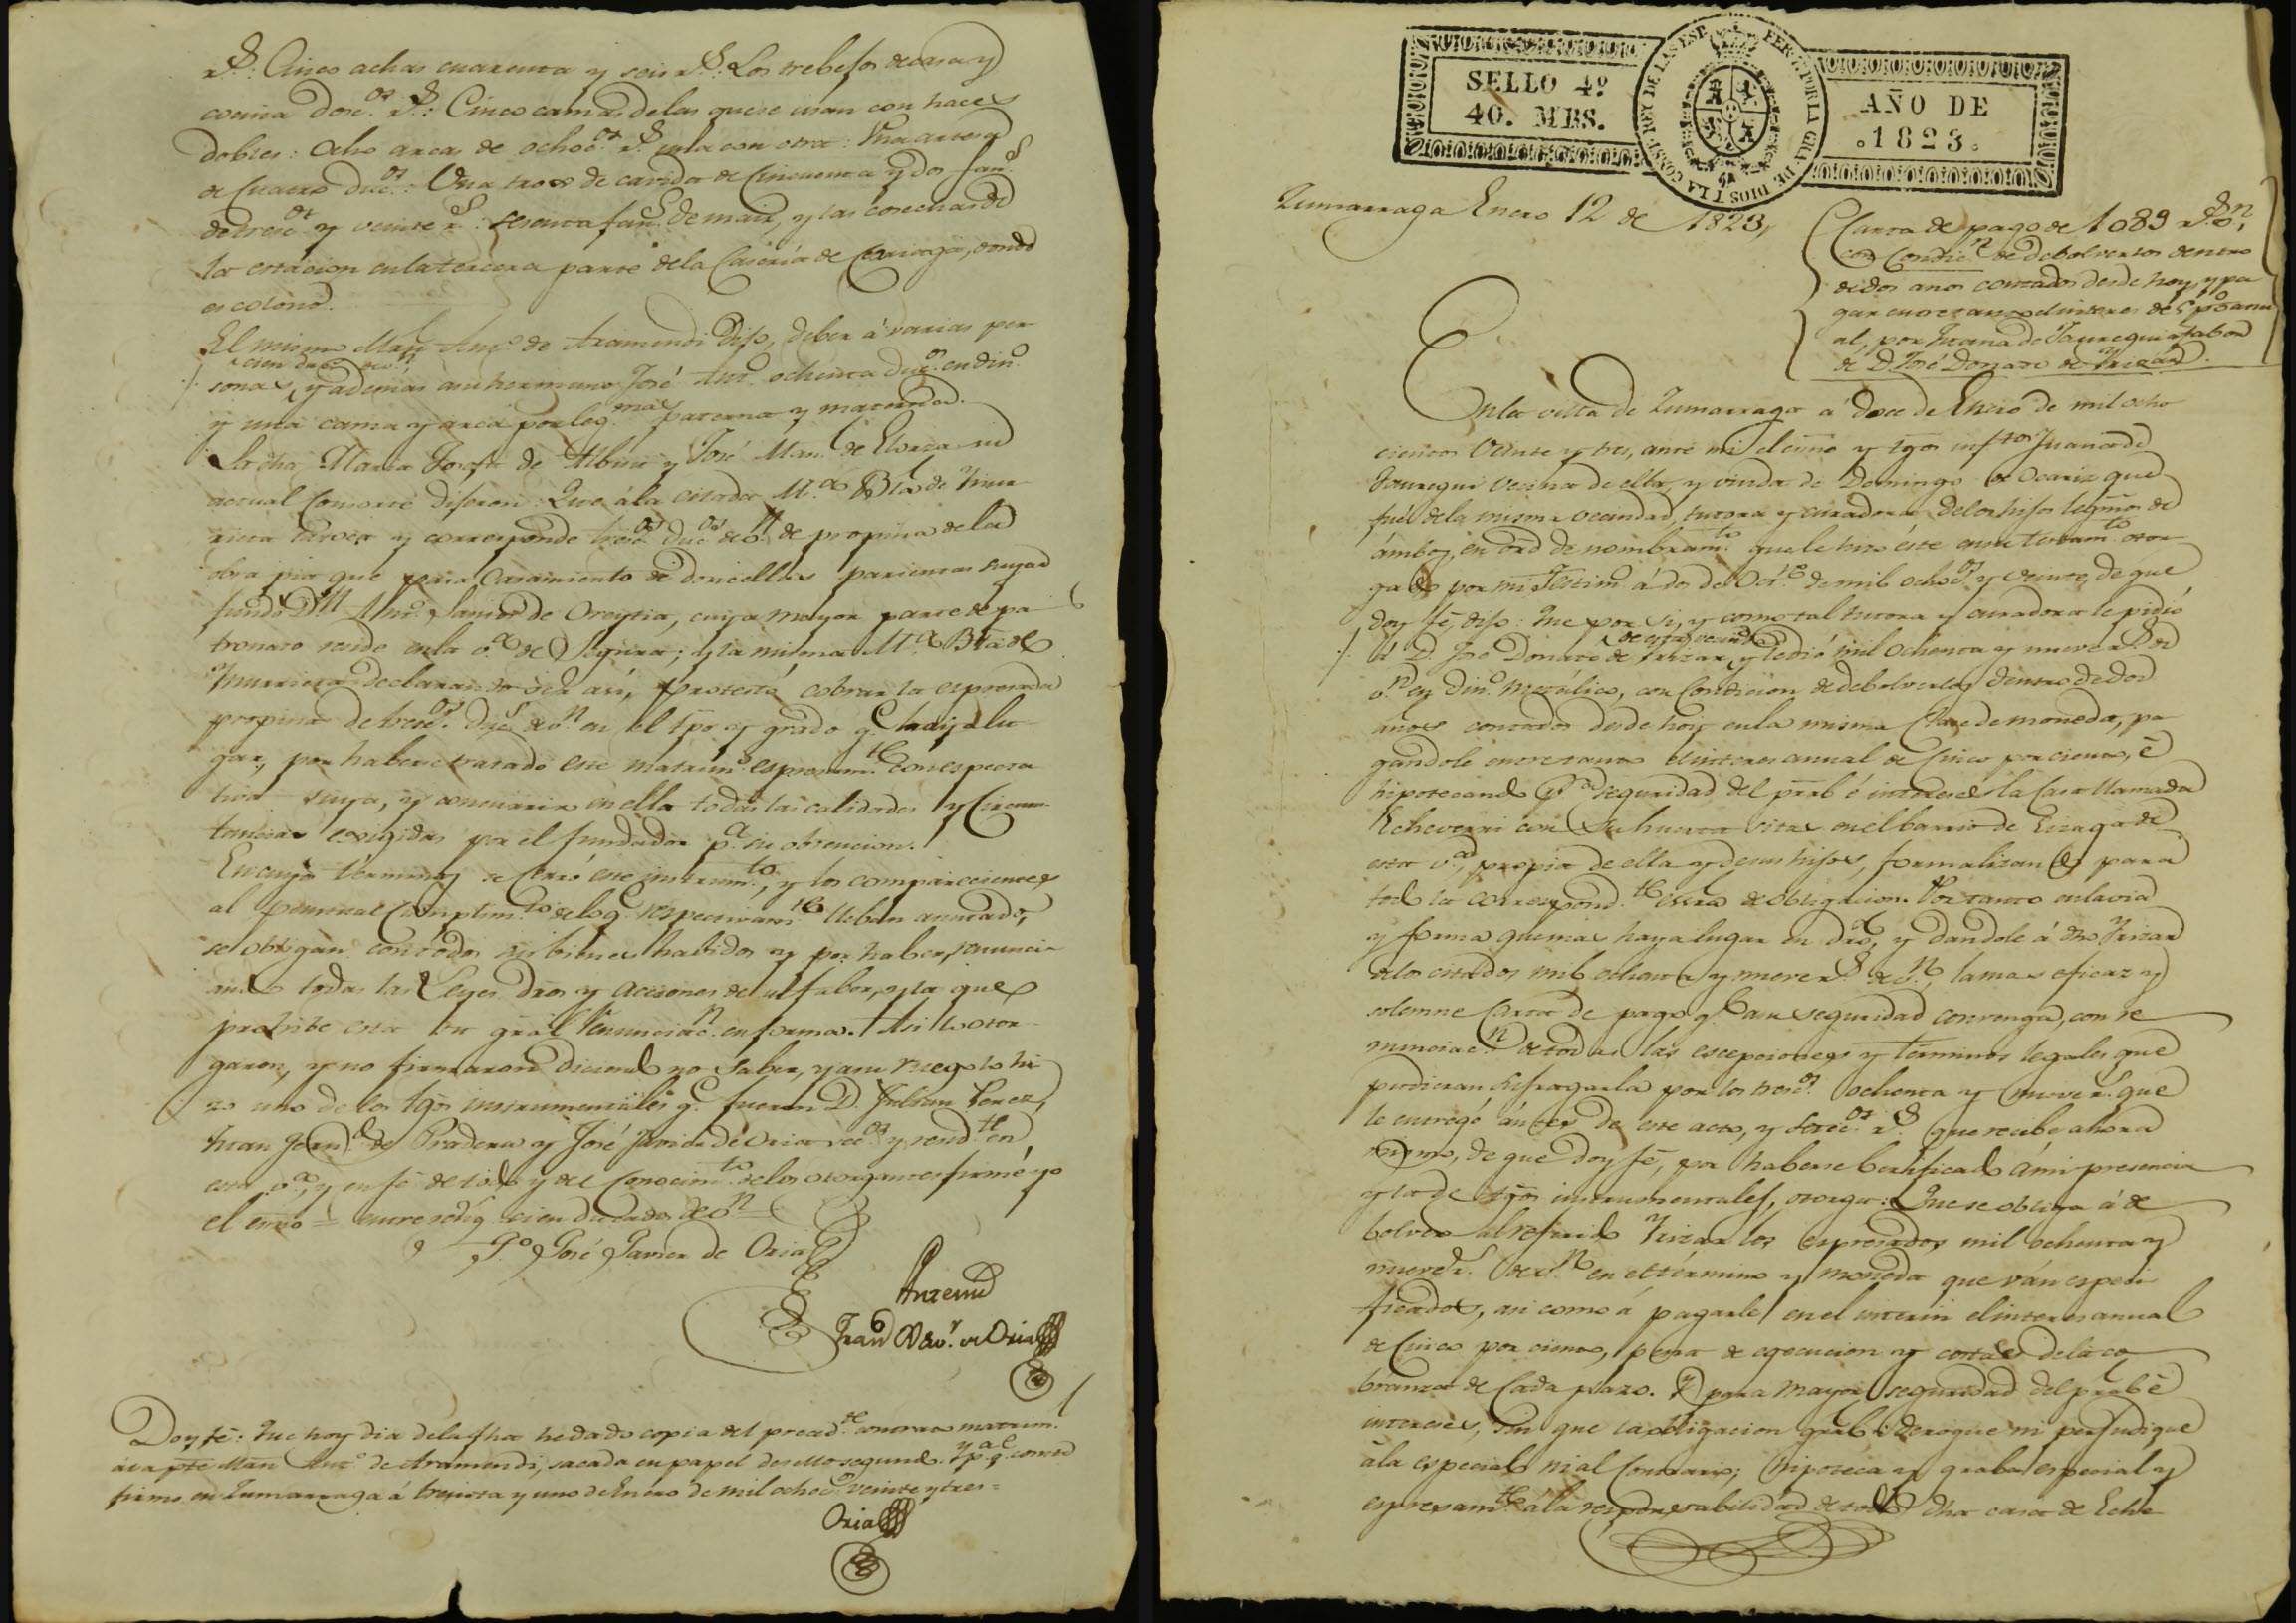 r.s: Cinco achas cuarenta y seis r.s: Los trebejos de casa y
cocina dosc.os r.s: Cinco camas de las que se usan con haces
dobles: Ocho arcas de ochoc.os r.s una con otra: Una artesa
de Cuatro duc.os: Una troxe de cavida de Cincuenta y dos fan.s
de tresc.os y veinte r.s: sesenta fan.s de maiz, y las cosechas de
la estacion en la tercera parte de la Caseria de donde
es colono.
El mismo Man.l Ant.o de Aramendi Dijo, deber á varias per
cien duc.s de v.n
sonas, y ademas a su hermano José Ant.o ochenta duc.os en din.o
y una cama y arca por leg.mas paterna y materna.
La dha Maria Josefa de Albisu y José Man.l de Elorza su
actual Consorte dijeron: Que á la citada M.a B.ta de
rieta toca y corresponde tresc.os duc.os de v.n de propina de la
obra pia que para Casamiento de doncellas parientas suyas
fundó D.n Ant.o Santos de Oreytia, cuya mayor parte de pa
tronato reside en la v.a de Segura; y la misma M.a B.ta de
declarando ser asi, protestó cobrar la espresada
propina de tresc.os duc.s de v.n en el tpo y grado q.e haya lu
gar, por haberse tratado este matrim.o espresam.te con especta
tiva suya, y concurrir en ella todas las calidades y Circuns
tancias exigidas por el fundador p.a su obtencion.
En cuyos terminos se Cerró este instrum.to, y los comparecientes
al puntual Cumplim.to de lo q.e respectivam.te lleban sentado,
se obligan con todos sus bienes habidos y por haber, renuncia
ando todas las Leyes dros y acciones de su fabor, y la que
prohibe esta en gral renunciac.n en forma. Asi lo otor
garon, y no firmaron diciendo no saber, y a su ruego lo hi
zo uno de los tgos instrumentales q.e fueron D. Julian Perez,
Juan Fern.do de Pradera y José Javier de Oria vec.os y resid.tes en
esta v.a, y en fé de todo y del Conocim.to de los otorgantes firmé yo
el esno = entre reng.s cien ducados de v.n =
T.o José Javier de Oria
Antemi
Fran.co Xav.r de Oria
Doy fé: Que hoy dia de la fha he dado copia del preced.te contrato matrim.l
á la pte Man.l Ant.o de Aramendi, sacada en papel de sello segundo. y p.a q.e conste
firmo, en Zumarraga á treinta y uno de Enero de mil ochoc.s veinte y tres =
Oria
SELLO 4º
40. MRS.
FER. 7. POR LA GRA. DE DIOS Y LA CONST. REY DE LAS ESP.
AÑO DE
.1823.
Zumarraga Enero 12 de 1823,
Carta de pago de 1089 r.s v.n,
con Condic.n de debolverlos dentro
de dos años contados desde hoy, y pa
gar entretanto el interes de 5 p% anu
al, por Juana de Jauregui á fabor
de D. José Donato de Yrizar.
En la villa de Zumarraga á doce de Enero de mil ocho
cientos veinte y tres, ante mi el esno y tgos infros Juana de
Jauregui vecina de ella, y viuda de Domingo de Ocariz que
fué de la misma vecindad, tutora y curadora de los hijos legmos de
ámbos, en ord de nombram.to que le hizo este en su testam.to otor
gado por mi testim.o á dos de Oct.re de mil ochoc.os y veinte, de que
doy fé, dijo: Que por si, y como tal tutora y curadora le pidió
de esta vecind
á D. José Donato de Yrizar, y le dió mil ochenta y nueve r.s de
v.n en din.o metálico, con Condicion de debolverlos dentro de dos
años contados desde hoy en la misma Clase de moneda, pa
gandole entretanto el interes anual de Cinco por ciento, é
hipotecando p.a seguridad del pral é intereses la Casa llamada
Echeverri con su huerta sitas en el barrio de Eizaga de
esta v.a, propia de ella y de sus hijos, formalizando para
todo la correspond.te escra de obligacion. Por tanto en la via
y forma que mas haya lugar en dro, y dandole á dho Yrizar
de los citados mil ochenta y nueve r.s de v.n, la mas eficaz y
solemne Carta de pago q.e á su seguridad convenga, con re
nunciac.n de todas las escepciones y terminos legales que
pudieran sufragarla por los tresc.os ochenta y nueve r.s que
le entregó ántes de este acto, y setec.os r.s que recibe ahora
mismo, de que doy fé, por haberse berificado á mi presencia
y la de tgos instrumentales, otorga: Que se obliga á de
bolver al referido Yrizar los espresados mil ochenta y
nueve r.s de v.n en el término y moneda que ván especi
ficados, asi como á pagarle en el interin el interes anual
de Cinco por ciento, pena de egecucion y costas de la co
branza de Cada plazo. Y para mayor seguridad del pral é
intereses, sin que la obligacion gral derogue ni perjudique
á la especial ni al Contrario; hipoteca y graba especial y
espresam.te á la responsabilidad de todo dha casa de Eche